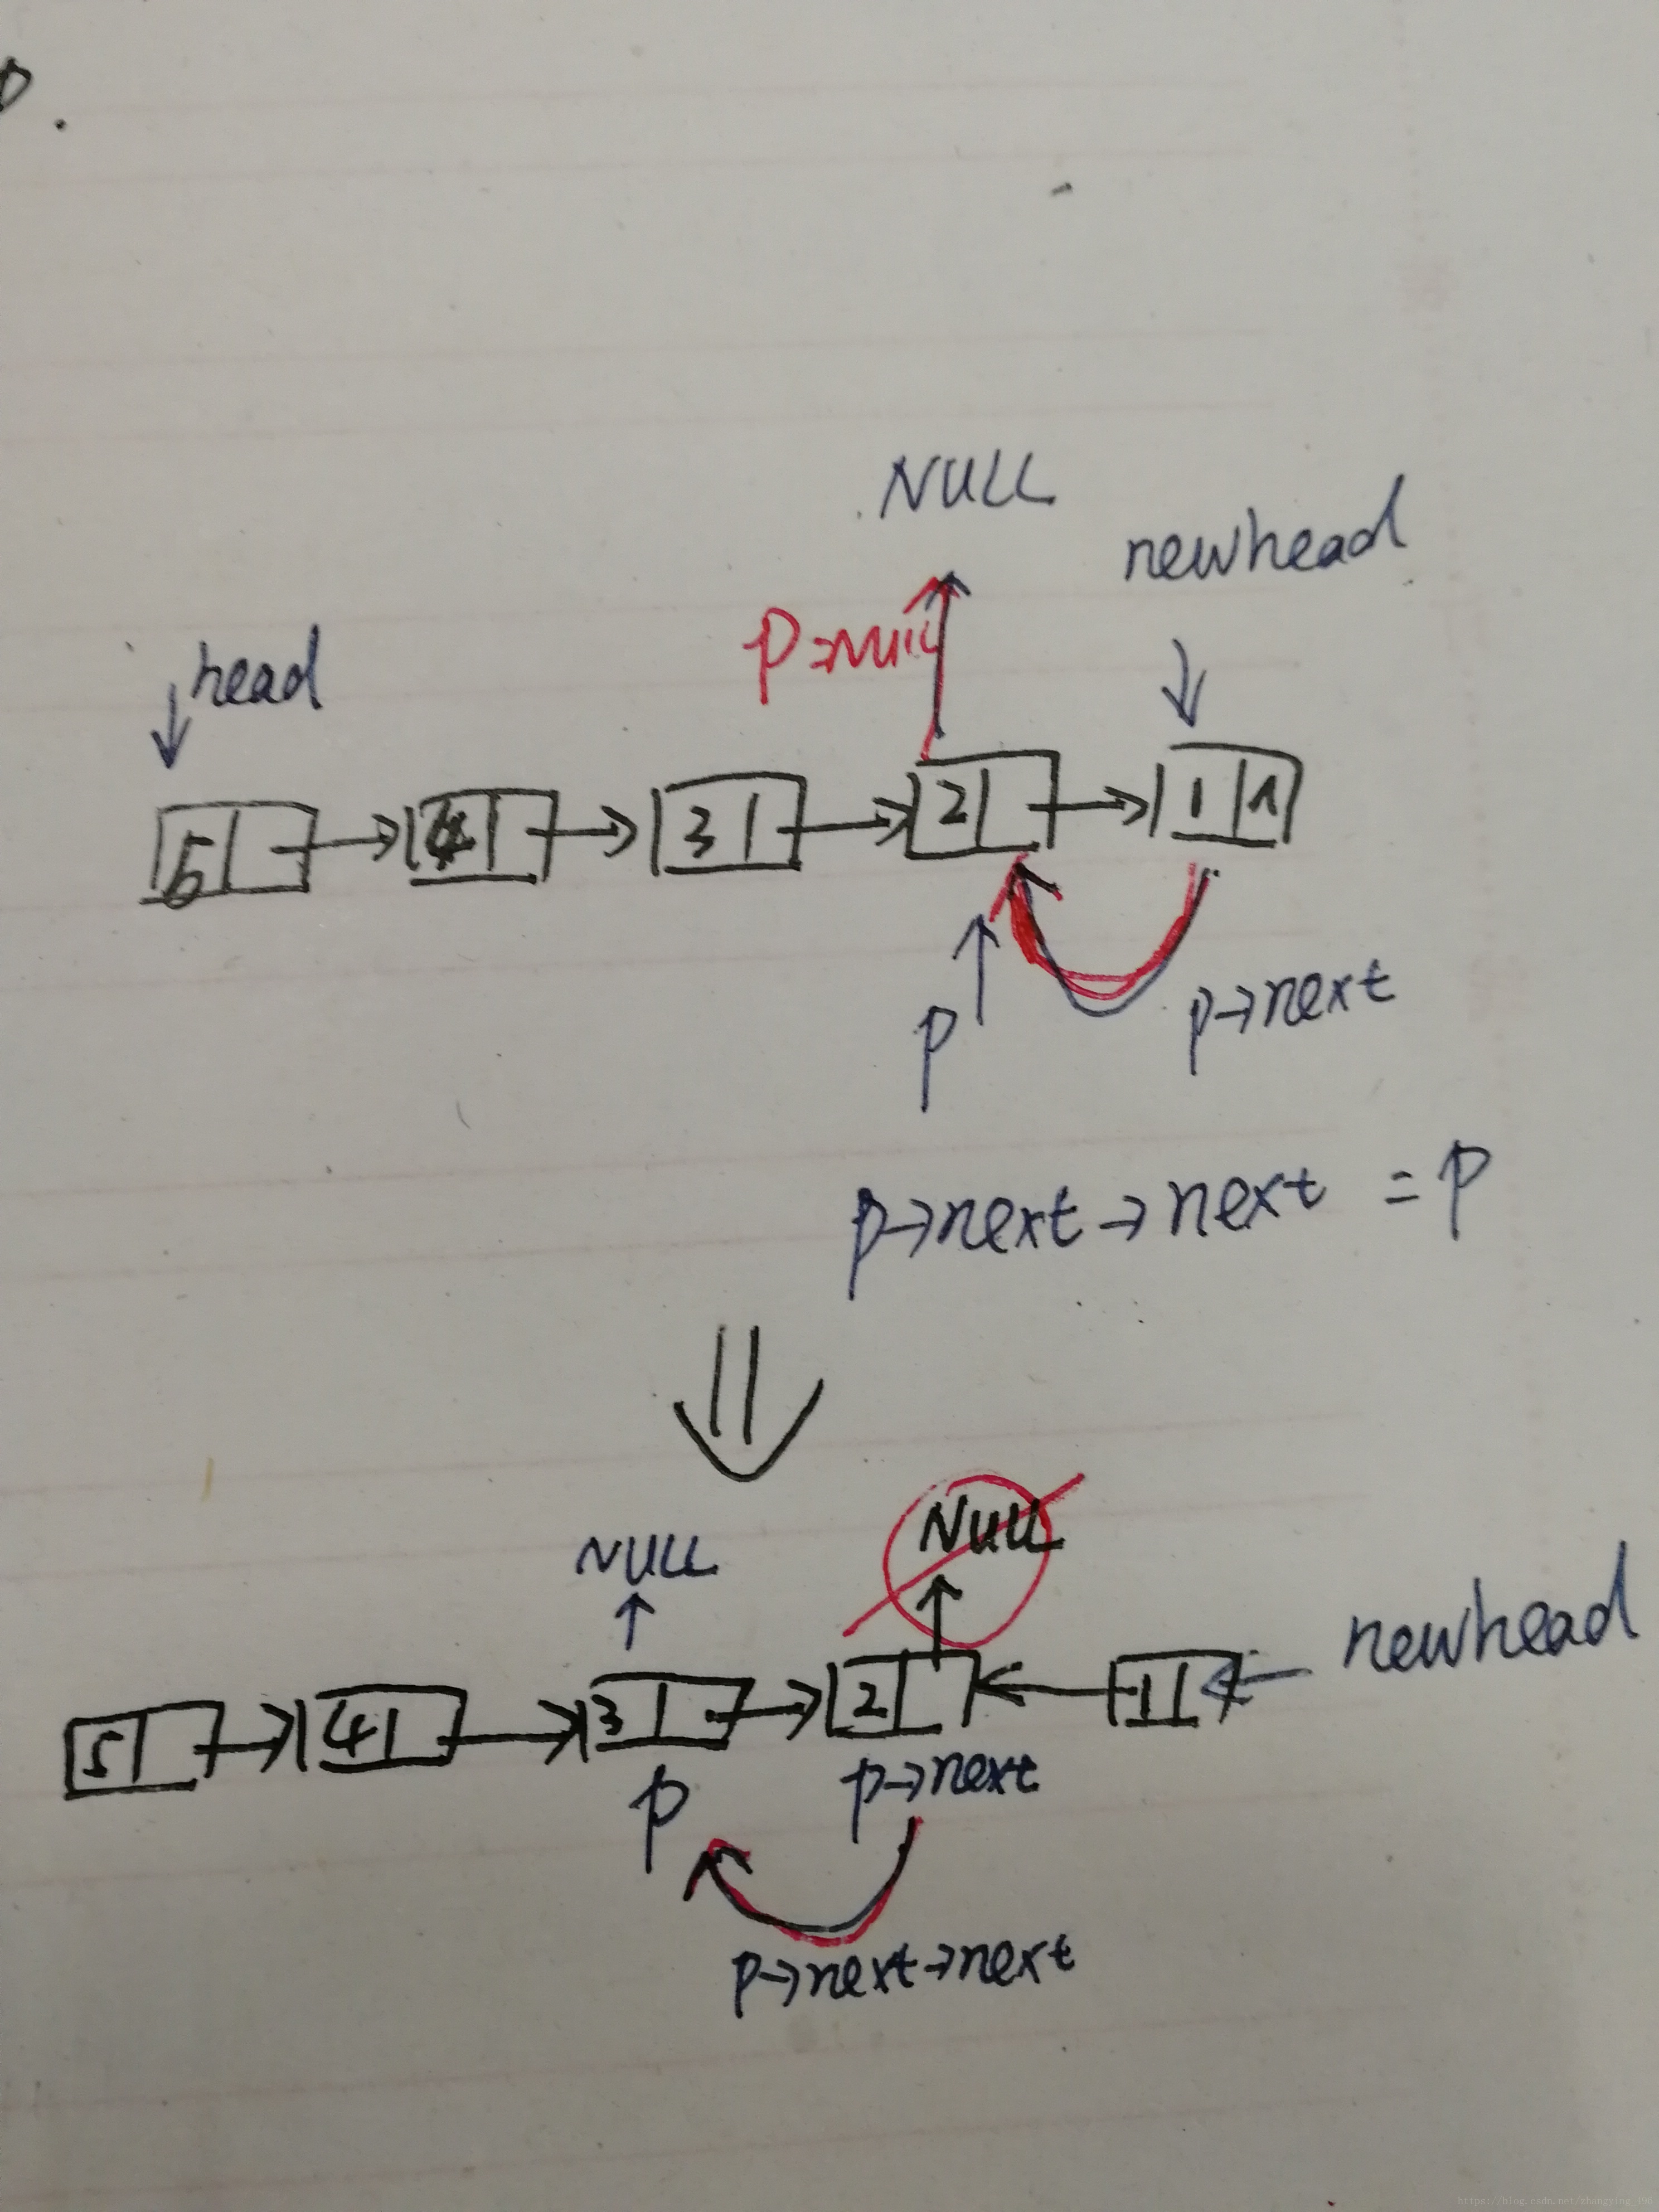 NULL
newhead
head
p=NULL
5 4 3 2 1 ∧
p
p→next
p→next→next = p
NULL
NULL
newhead
5 4 3 2 1
p
p→next
p→next→next